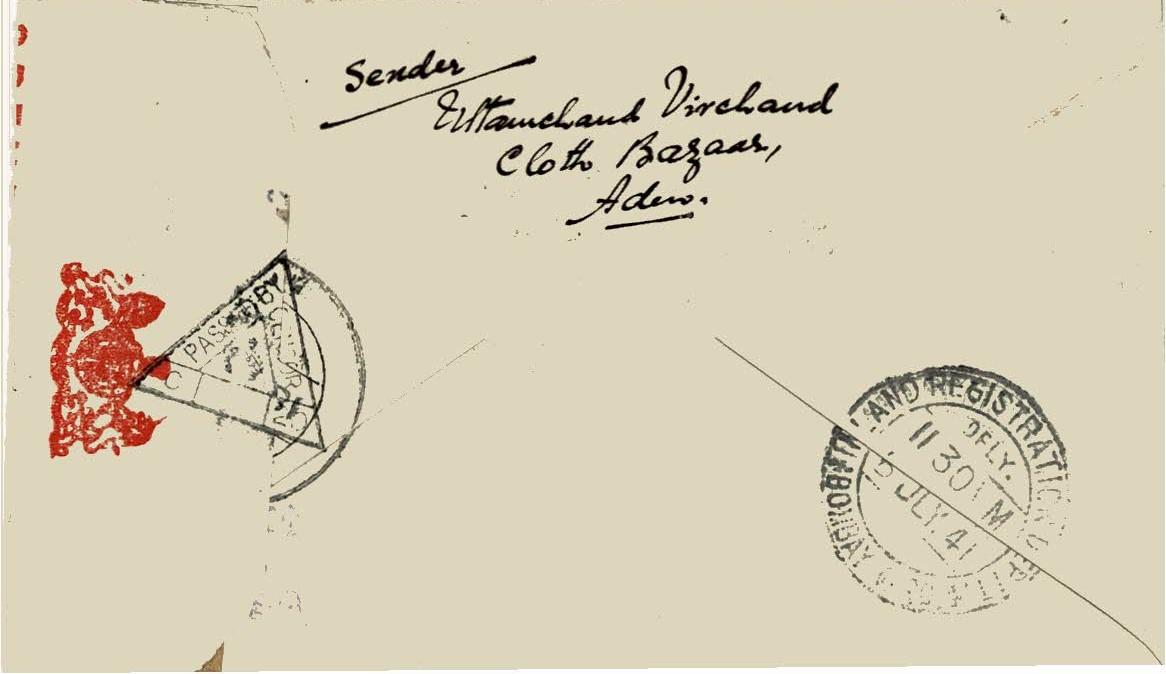 Sender
Uttamchand Virchand
Cloth Bazaar,
Aden.
PASSED BY
CENSOR
C
BOMBAY
AND REGISTRATION
DELY.
11 30 M
JLY. 41